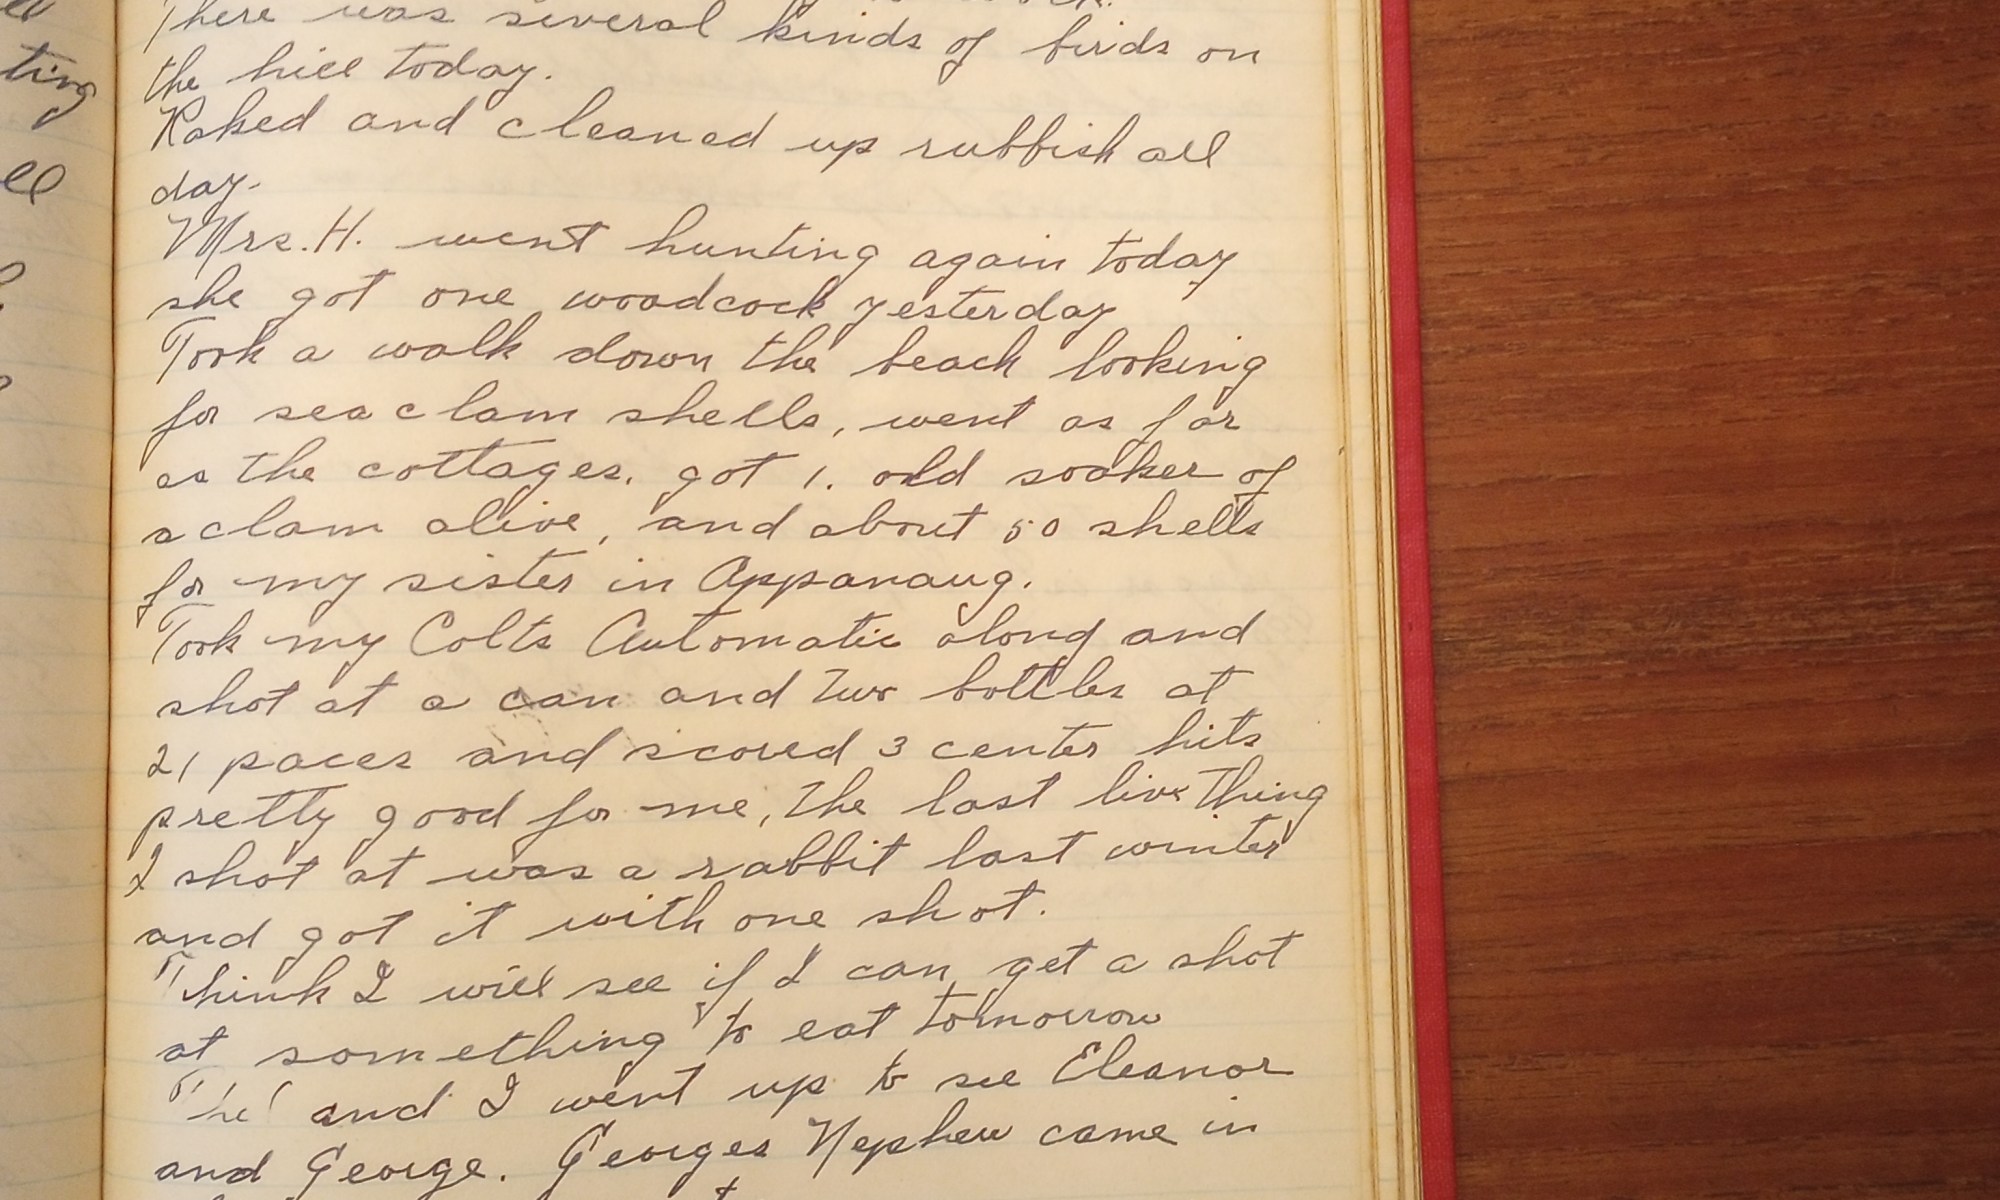 ting
ell
There was several kinds of birds on
the hill today.
Raked and cleaned up rubbish all
day.
Mrs. H. went hunting again today
she got one woodcock yesterday
Took a walk down the beach looking
for sea clam shells, went as far
as the cottages. got 1. old soaker of
a clam alive, and about 50 shells
for my sister in Appanaug.
Took my Colts Automatic along and
shot at a can and two bottles at
21 paces and scored 3 center hits
pretty good for me, the last live thing
I shot at was a rabbit last winter
and got it with one shot.
Think I will see if I can get a shot
at something to eat tomorrow
'The' and I went up to see Eleanor
and George. Georges Nephew came in